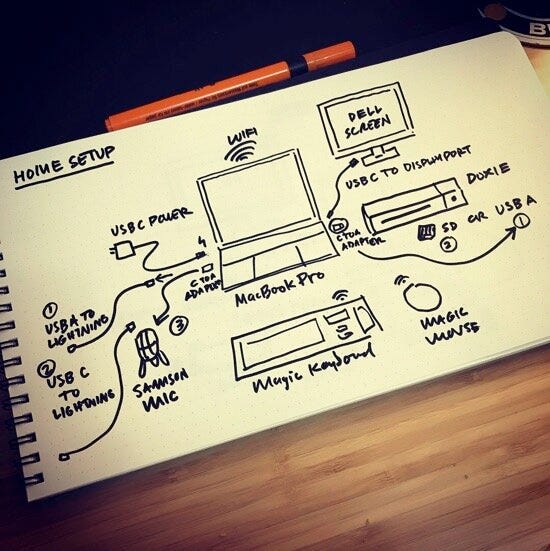 HOME SETUP
WIFI
DELL
SCREEN
USB C TO DISPLAYPORT
USB C POWER
DOXIE
SD OR USB A
①
②
C TO A
ADAPTER
C TO A
ADAPTER
MacBook Pro
①
USB A TO
LIGHTNING
②
USB C
TO
LIGHTNING
③
SAMSON
MIC
Magic Keyboard
MAGIC
MOUSE